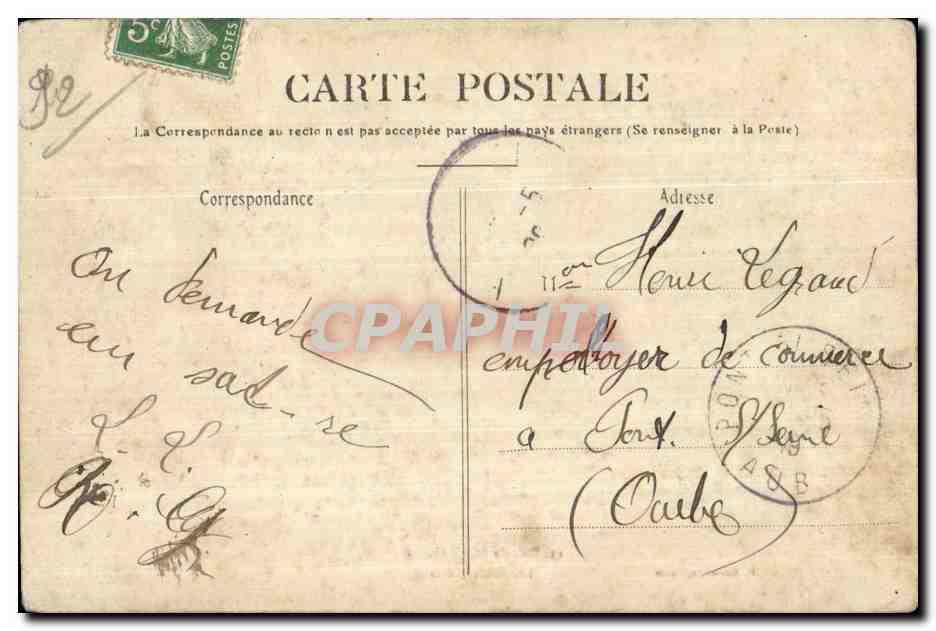 5c
POSTES
92
CARTE POSTALE
La Correspondance au recto n est pas acceptée par tous les pays étrangers (Se renseigner à la Poste)
Correspondance
on demande
en sad-se
L. L.
Adresse
Henri Legrand
employer de commerce
a Pont s/Seine
(Oaube)
PONT
AUB
CPAPHIL